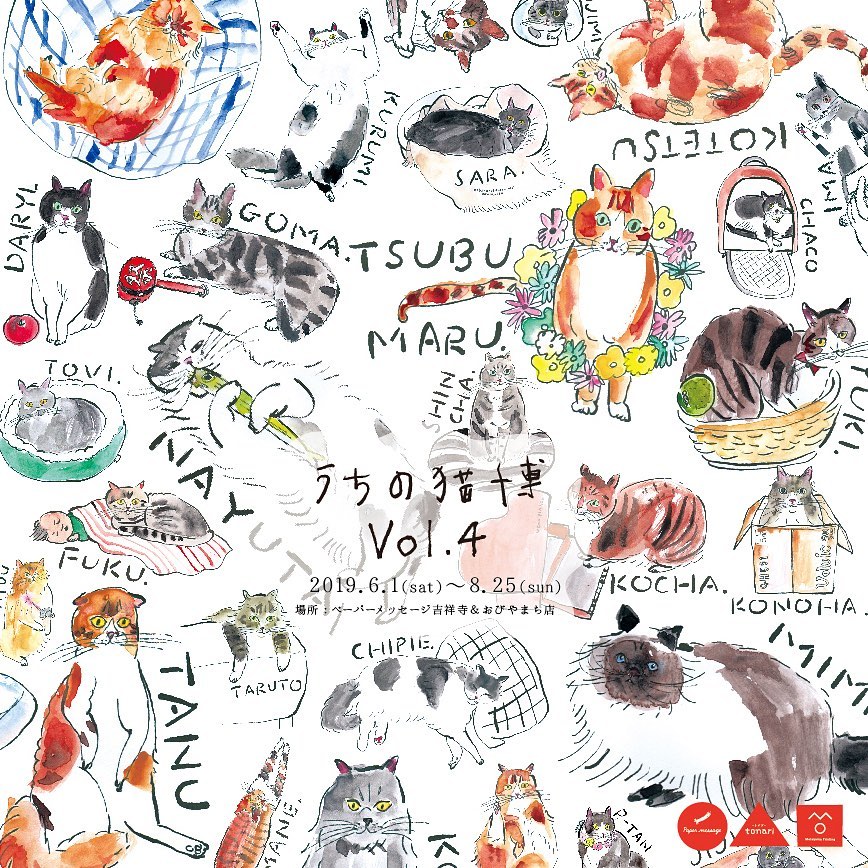 KURUMI
SARA.
KOTETSU
IMA
CHACO
DARYL
GOMA.
TSUBU
MARU.
TOVI.
NAYUTA
SHIN
CHA.
YUKI.
うちの猫博
Vol.4
2019.6.1(sat)〜8.25(sun)
場所：ペーパーメッセージ吉祥寺&おびやまち店
FUKU.
KOCHA.
KONOHA.
TANU
TARUTO
CHIPIE.
MIMI
P-TAN
Paper message
tonari